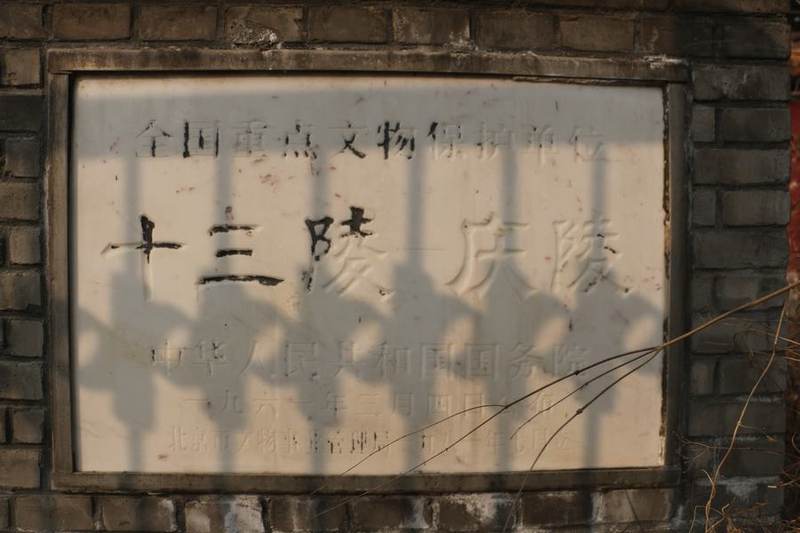 全国重点文物保护单位
十三陵—庆陵
中华人民共和国国务院
一九六一年三月四日公布
北京市文物事业管理局